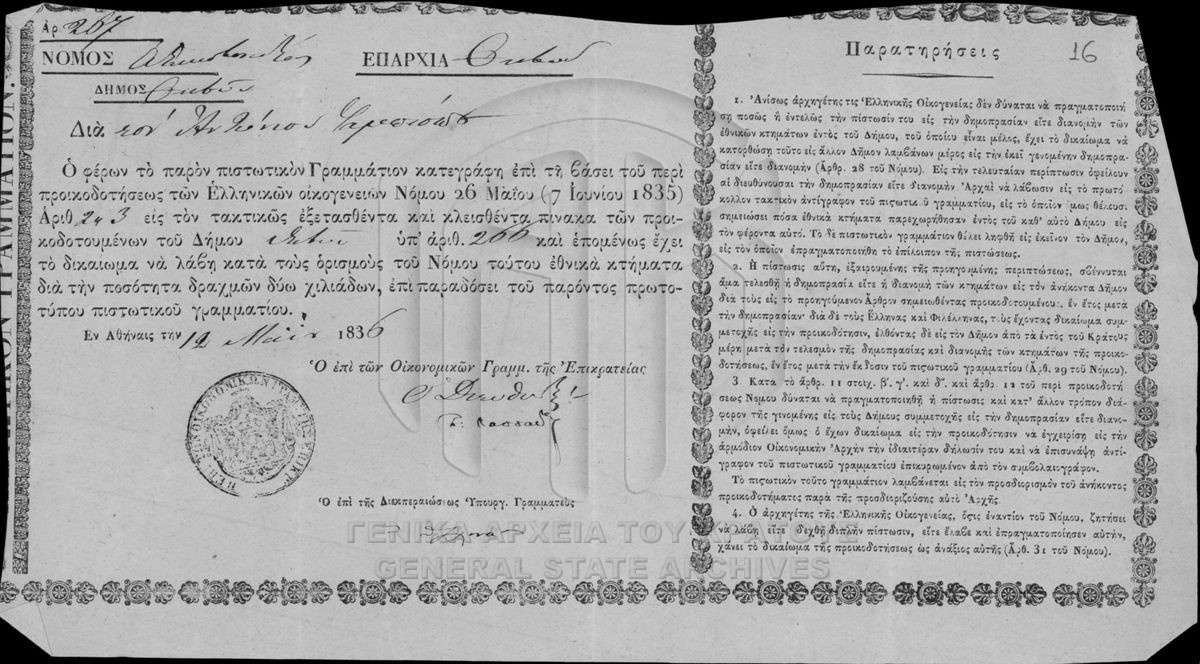 Ἀρ. 267
ΝΟΜΟΣ
ΕΠΑΡΧΙΑ Θηβῶν
ΔΗΜΟΣ Θηβῶν
Διὰ τὸν Ἀντώνιον
Ὁ φέρων τὸ παρὸν πιστωτικὸν Γραμμάτιον κατεγράφη ἐπὶ τῇ βάσει τοῦ περὶ
προικοδοτήσεως τῶν Ἑλληνικῶν οἰκογενειῶν Νόμου 26 Μαΐου (7 Ἰουνίου 1835)
Ἀριθ. 243 εἰς τὸν τακτικῶς ἐξετασθέντα καὶ κλεισθέντα πίνακα τῶν προι-
κοδοτουμένων τοῦ Δήμου Θηβῶν ὑπ' ἀριθ. 266 καὶ ἑπομένως ἔχει
τὸ δικαίωμα νὰ λάβῃ κατὰ τοὺς ὁρισμοὺς τοῦ Νόμου τούτου ἐθνικὰ κτήματα
διὰ τὴν ποσότητα δραχμῶν δύω χιλιάδων, ἐπὶ παραδόσει τοῦ παρόντος πρωτο-
τύπου πιστωτικοῦ γραμματίου.
Ἐν Ἀθήναις τὴν 12 Μαΐου 1836
Ὁ ἐπὶ τῶν Οἰκονομικῶν Γραμμ. τῆς Ἐπικρατείας
Ὁ Διευθυντὴς
Ὁ ἐπὶ τῆς Διεκπεραιώσεως Ὑπουργ. Γραμματεὺς
Παρατηρήσεις
16
1. Ἀνίσως ἀρχηγέτης τις Ἑλληνικῆς Οἰκογενείας δὲν δύναται νὰ πραγματοποιή
σῃ ποσῶς ἢ ἐντελῶς τὴν πίστωσίν του εἰς τὴν δημοπρασίαν εἴτε διανομὴν τῶν
ἐθνικῶν κτημάτων ἐντὸς τοῦ Δήμου, τοῦ ὁποίου εἶναι μέλος, ἔχει τὸ δικαίωμα νὰ
κατορθώσῃ τοῦτο εἰς ἄλλον Δῆμον λαμβάνων μέρος εἰς τὴν ἐκεῖ γενομένην δημοπρα-
σίαν εἴτε διανομὴν (Ἄρθρ. 28 τοῦ Νόμου). Εἰς τὴν τελευταίαν περίπτωσιν ὀφείλουν
αἱ διευθύνουσαι τὴν δημοπρασίαν εἴτε διανομὴν Ἀρχαὶ νὰ λάβωσιν εἰς τὸ πρωτό
κολλον τακτικὸν ἀντίγραφον τοῦ πιστωτικοῦ γραμματίου, εἰς τὸ ὁποῖον ὅμως θέλουσι
σημειώσει πόσα ἐθνικὰ κτήματα παρεχωρήθησαν ἐντὸς τοῦ καθ' αὑτὸ Δήμου εἰς
τὸν φέροντα αὐτό. Τὸ δὲ πιστωτικὸν γραμμάτιον θέλει ληφθῆ εἰς ἐκεῖνον τὸν Δῆμον,
εἰς τὸν ὁποῖον ἐπραγματοποιήθη τὸ ἐπίλοιπον τῆς πιστώσεως.
2. Ἡ πίστωσις αὕτη, ἐξαιρουμένης τῆς προηγουμένης περιπτώσεως, σβέννυται
ἅμα τελεσθῇ ἡ δημοπρασία εἴτε ἡ διανομὴ τῶν κτημάτων εἰς τὸν ἀνήκοντα Δῆμον
διὰ τοὺς εἰς τὸ προηγούμενον Ἄρθρον σημειωθέντας προικοδοτουμένους, ἓν ἔτος μετὰ
τὴν δημοπρασίαν· διὰ δὲ τοὺς Ἕλληνας καὶ Φιλέλληνας, τοὺς ἔχοντας δικαίωμα συμ-
μετοχῆς εἰς τὴν προικοδότησιν, ἐλθόντας δὲ εἰς τὸν Δῆμον ἀπὸ τὰ ἐντὸς τοῦ Κράτους
μέρη μετὰ τὸν τελεσμὸν τῆς δημοπρασίας καὶ διανομῆς τῶν κτημάτων τῆς προικο-
δοτήσεως, ἓν ἔτος μετὰ τὴν ἔκδοσιν τοῦ πιστωτικοῦ γραμματίου (Ἄρθ. 29 τοῦ Νόμου).
3. Κατὰ τὸ ἄρθρ. 11 στοιχ. β'. γ'. καὶ δ'. καὶ ἄρθρ. 12 τοῦ περὶ προικοδοτή
σεως Νόμου δύναται νὰ πραγματοποιηθῇ ἡ πίστωσις καὶ κατ' ἄλλον τρόπον διά-
φορον τῆς γινομένης εἰς τοὺς Δήμους συμμετοχῆς εἰς τὴν δημοπρασίαν εἴτε διανο-
μήν, ὀφείλει ὅμως ὁ ἔχων δικαίωμα εἰς τὴν προικοδότησιν νὰ ἐγχειρίσῃ εἰς τὴν
ἁρμόδιον Οἰκονομικὴν Ἀρχὴν τὴν ἰδιαιτέραν δήλωσίν του καὶ νὰ ἐπισυνάψῃ ἀντί-
γραφον τοῦ πιστωτικοῦ γραμματίου ἐπικυρωμένον ἀπὸ τὸν συμβολαιογράφον.
Τὸ πιστωτικὸν τοῦτο γραμμάτιον λαμβάνεται εἰς τὸν προσδιορισμὸν τοῦ ἀνήκοντος
προικοδοτήματος παρὰ τῆς προσδιοριζούσης αὐτὸ Ἀρχῆς.
4. Ὁ ἀρχηγέτης τῆς Ἑλληνικῆς Οἰκογενείας, ὅστις ἐναντίον τοῦ Νόμου, ζητήσει
νὰ λάβῃ εἴτε δεχθῇ διπλῆν πίστωσιν, εἴτε ἔλαβε καὶ ἐπραγματοποίησεν αὐτήν,
χάνει τὸ δικαίωμα τῆς προικοδοτήσεως ὡς ἀνάξιος αὐτῆς (Ἄρθ. 31 τοῦ Νόμου).
ΓΕΝΙΚΑ ΑΡΧΕΙΑ ΤΟΥ ΚΡΑΤΟΥΣ
GENERAL STATE ARCHIVES